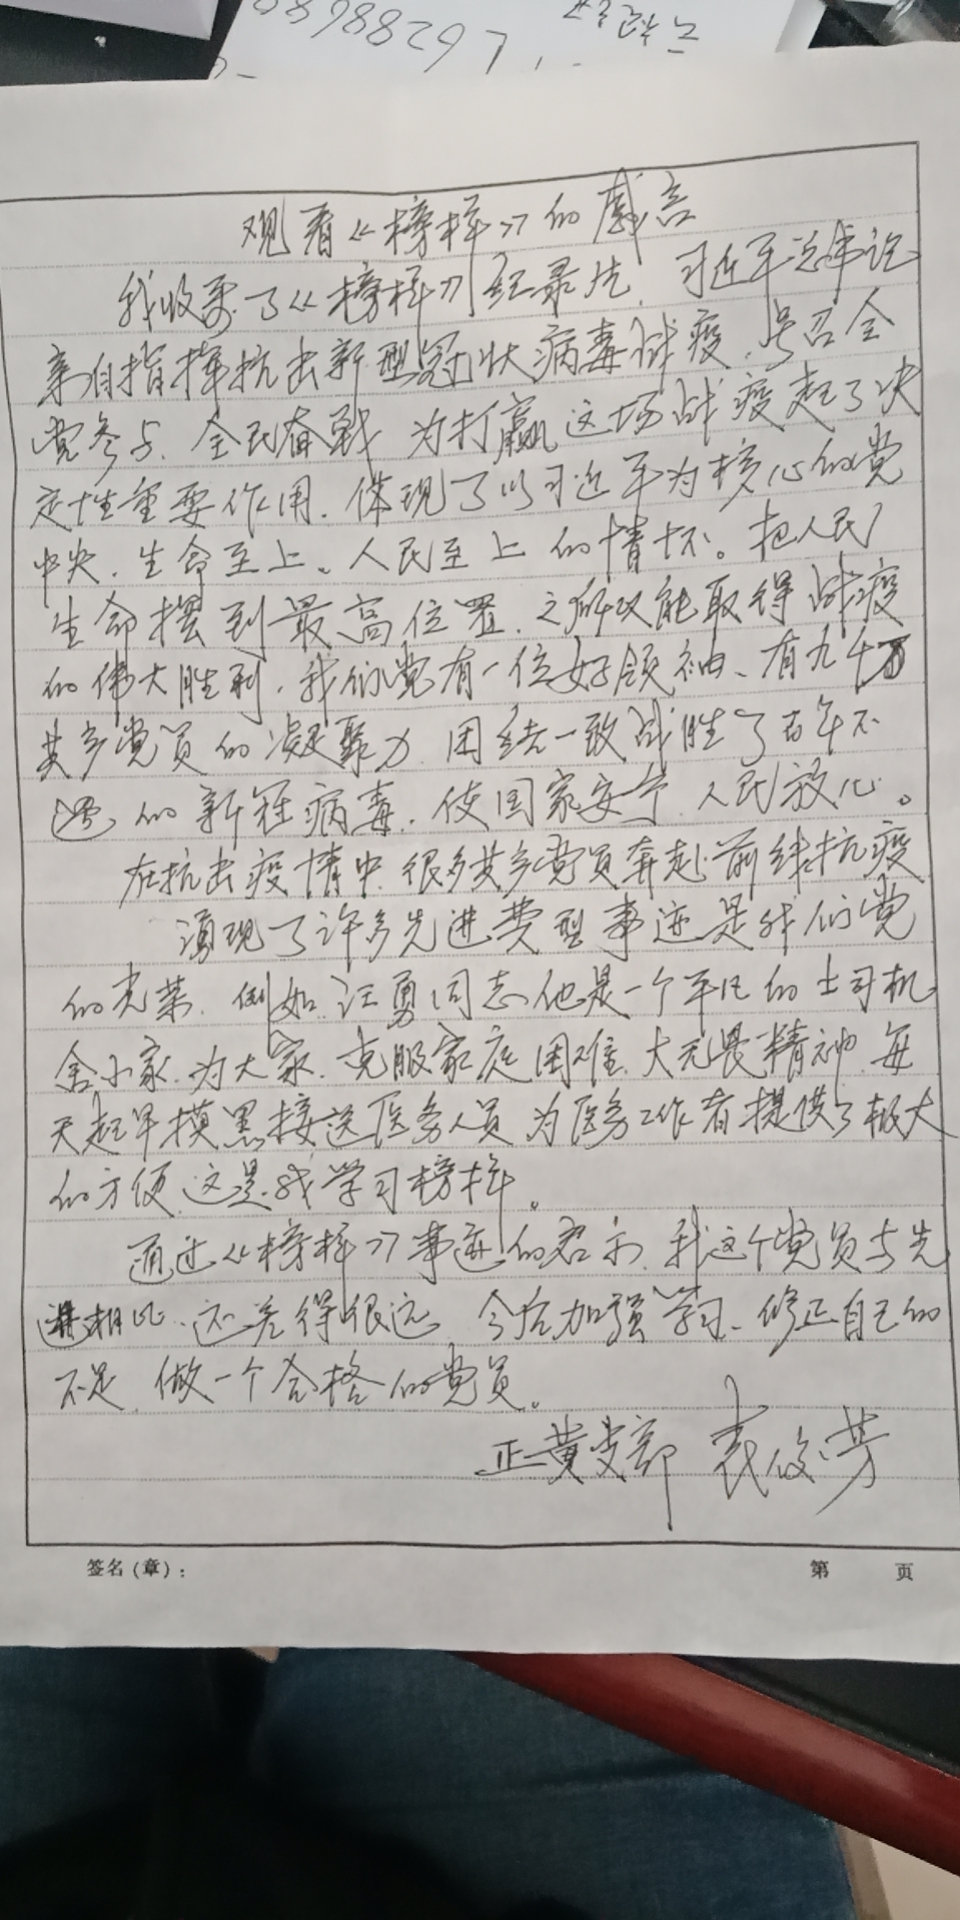 88988297
观看《榜样》的感言
我收看了《榜样》纪录片，习近平总书记
亲自指挥抗击新型冠状病毒战疫，号召全
党参与，全民奋战 为打赢这场战疫起了决
定性重要作用，体现了以习近平为核心的党
中央，生命至上、人民至上的情怀。把人民
生命摆到最高位置，之所以能取得战疫
的伟大胜利，我们党有一位好领袖、有九千万
共产党员的凝聚力，团结一致战胜了百年不
遇的新冠病毒，使国家安宁，人民放心。
在抗击疫情中，很多共产党员奔赴前线抗疫
涌现了许多先进典型事迹是我们党
的光荣，例如汪勇同志他是一个平凡的士司机
舍小家，为大家，克服家庭困难，大无畏精神，每
天起早摸黑接送医务人员 为医务工作者提供了极大
的方便，这是我学习榜样。
通过《榜样》事迹的启示，我这个党员与先
进相比，还差得很远，今后加强学习、修正自己的
不足，做一个合格的党员。
正黄支部 袁俊芳
签名（章）： 第 页